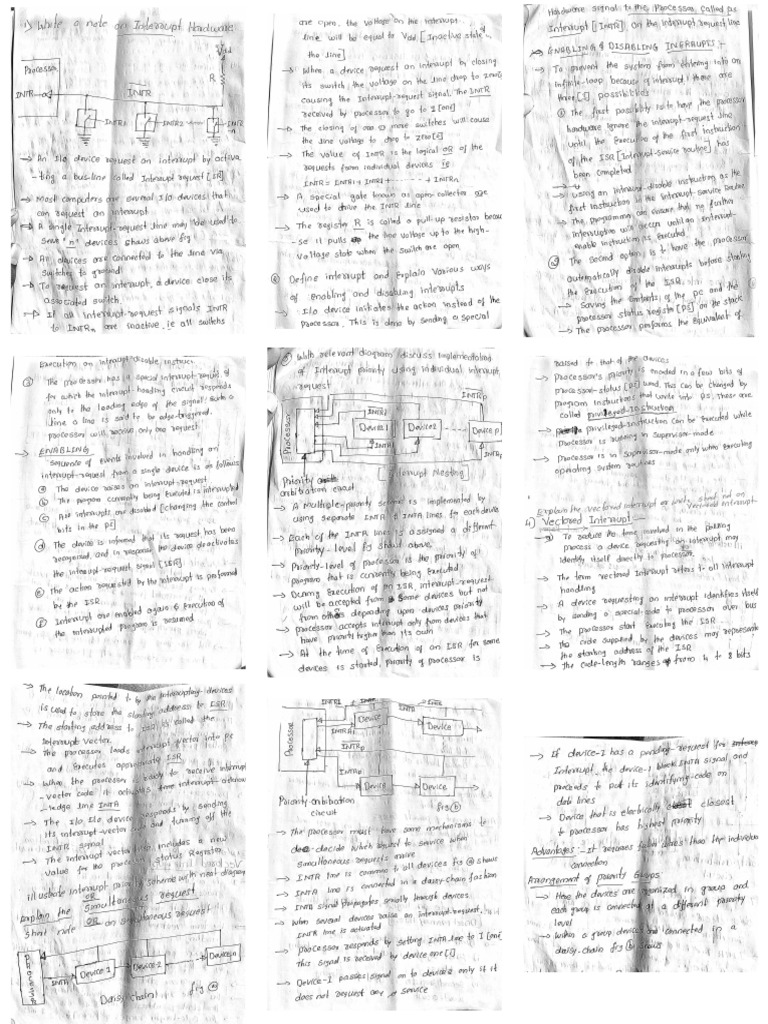 1) Write a note on Interrupt Hardware
Vdd
Processor
R
INTR
INTR
INTR1
INTR2
INTR n
→ An I/o device request an interrupt by activa
-ting a bus-line called Interrupt request [ISR]
→ Most computers are several I/o devices that
can request an interrupt
→ A single Interrupt-request line may be used to
serve 'n' devices shows above fig
→ All devices are connected to the line via
switches to ground
→ To request an interrupt, a device close its
associated switch.
→ If all interrupt-request signals INTR1
to INTRn are inactive, ie all switchs
are open, the voltage on the interrupt
line will be equal to Vdd. [Inactive state of
the line]
→ When a device request an interrupt by closing
its switch, the voltage on the line drop to zero
causing the interrupt-request signal. The INTR
received by processor to go to 1 [one]
→ The closing of one or more switches will cause
the line voltage to drop to zero[0]
→ The value of INTR is the logical OR of the
requests from individual devices is
INTR = INTR1 + INTR2 + ------- + INTRn
→ A special gate known as open-collector are
used to drive the INTR line
→ The register R is called a pull-up resistor becau
-se it pulls the line voltage up to the high-
voltage state when the switch are open
② Define interrupt and explain various ways
of enabling and disabling interrupts
→ I/o device initiates the action instead of the
Processor. This is done by sending a special
Hardware signal to the Processor called as
Interrupt [INTR] on the interrupt request line
ENABLING & DISABLING INTERRUPTS :-
→ To prevent the system from entering into an
infinite-loop because of interrupt, there are
three[3] possibilities
① The first possibility is to have the processor
hardware ignore the interrupt-request line
until the Execution of the first instruction
of the ISR [Interrupt-service routine] has
been completed
→ Using an interrupt-disable instruction as the
first instruction in the interrupt-service routine
→ The programming can ensure that no further
interruption will occur until an interrupt-
enable instruction is executed
② The second option is to have the processor
automatically disable interrupts before starting
the Execution of the ISR.
→ Saving the contents of the pc and the
processor status register [PS] on the stack
→ The processor performs the Equivalent of
Execution an interrupt-disable instruct.
③ The processor has a special interrupt-request
for which the interrupt-handling circuit responds
only to the leading edge of the signal. Such a
line is said to be edge-triggered.
processor will receive only one request
→ ENABLING
Sequence of Events involved in handling an
interrupt-request from a single device is as follows
ⓐ The device raises an interrupt-request
ⓑ The program currently being Executed is interrupted
ⓒ All interrupts are disabled [changing the control
bits in the PS]
ⓓ The device is informed that its request has been
recognized, and in response the device deactivates
the interrupt-request signal [ISR]
ⓔ The action requested by the interrupt is performed
by the ISR
ⓕ Interrupt are enabled again & Execution of
the interrupted program is resumed
③ With relevant diagram discuss implementation
of Interrupt priority using individual interrupt
request
INTRp
Processor
INTR1
Device 1
Device 2
Device p
INTA1
Priority
arbitration circuit
Interrupt Nesting
→ A Multiple-priority is implemented by
using separate INTR & INTA lines for each device
→ Each of the INTR lines is assigned a different
priority-level fig shows above
→ Priority-level of processor is the priority of
program that is currently being Executed
→ During Execution of an ISR, interrupt-request
will be accepted from some devices but not
from others depending upon devices priority
→ processor accepts interrupt only from devices that
have priority higher than its own
→ At the time of Execution of an ISR for some
devices is started, priority of processor is
raised to that of the devices
→ Processor's priority is encoded in a few bits of
processor-status [PS] word. This can be changed by
program instructions that write into PS. These are
called privileged-instruction
→ privileged-instruction can be Executed while
processor is running in supervisor-mode
→ processor is in supervisor-mode only when executing
operating system routines
Explain the vectored interrupt or
4) Vectored Interrupt
→ To reduce the time involved in the polling
process a device requesting an interrupt may
identify itself directly to processor.
→ The term vectored Interrupt refers to all interrupt
handling
→ A device requesting an interrupt identifies itself
by sending a special code to processor over bus
→ The processor start executing the ISR
→ The code supplied by the devices may represente
the starting address of the ISR
→ The code-length ranges from 4 to 8 bits
→ The location pointed to by the interrupting devices
is used to store the starting address to ISR
→ The starting address to ISR is called the
Interrupt vector.
→ The processor loads interrupt vector into pc
and Executes appropriate ISR
→ When the processor is ready to receive interrupt
-vector code it activates the interrupt-acknow
-ledge line INTA
→ The I/o device responds by sending
its interrupt-vector code and turning off the
INTR signal
→ The interrupt vector includes a new
value for the processor status Register
illustrate interrupt priority scheme with neat diagram
OR
Explain the simultaneous request
OR
short note on simultaneous request
Processor
INTA
Device 1
Device-2
Device n
Daisy chain fig ⓐ
INTR1
Device
Device
Processor
INTA1
INTRp
INTAp
Device
Device
Priority arbitration
circuit
fig ⓑ
→ The processor must have some mechanisms to
decide which request to service when
simultaneous requests arrive
→ INTR line is common to all devices fig ⓐ shows
→ INTA line is connected in a daisy-chain fashion
→ INTA signal propagates serially through devices
→ When several devices raise an interrupt-request,
INTR line is activated
→ processor responds by setting INTA line to 1 [one]
This signal is received by device one[1]
→ Device-1 passes signal on to device 2 only if it
does not request any service
→ If device-1 has a pending-request for
Interrupt, the device-1 block INTA signal and
proceeds to put its identifying-code on
data lines
→ Device that is electrically closest
to processor has highest priority
Advantages :- It requires fewer wires than the individual
connection
Arrangement of Priority Groups
→ Here the devices are organized in group and
each group is connected at a different priority
level
→ Within a group devices are connected in a
daisy-chain fig ⓑ shows